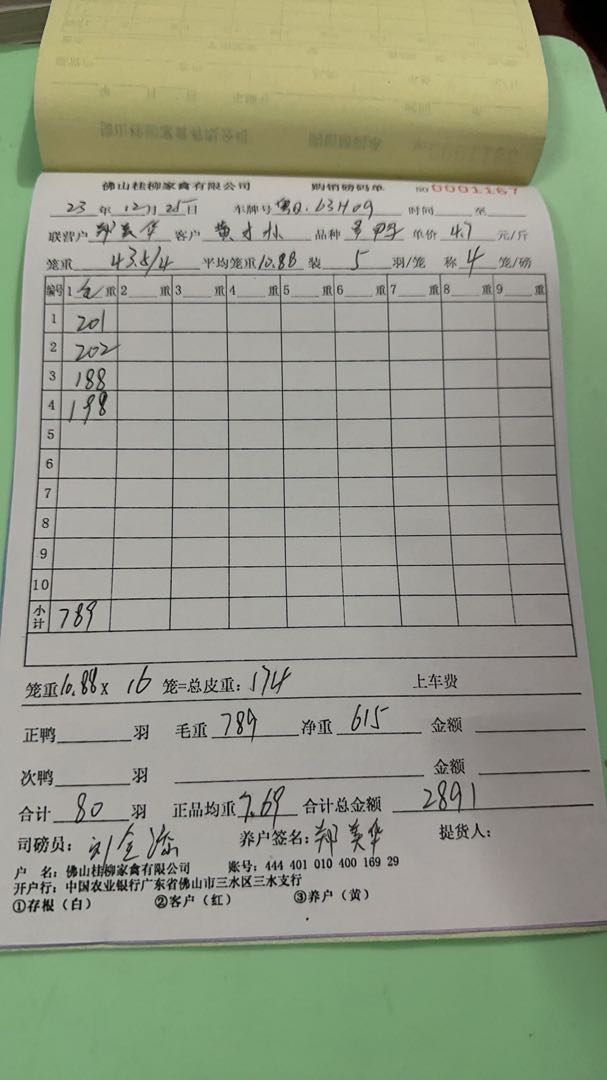 佛山桂柳家禽有限公司 购销磅码单 NO 0001167
23 年 12 月 25 日 车牌号 粤Q.63H09 时间 至
联营户 郑美华 客户 黄 品种 单价 4.7 元/斤
笼重 43.5/4 平均笼重 10.88 装 5 羽/笼 称 4 笼/磅
编号 1 毛 重 2 重 3 重 4 重 5 重 6 重 7 重 8 重 9 重
1 201
2 202
3 188
4 198
5
6
7
8
9
10
小计 789
笼重 10.88 x 16 笼=总皮重: 174 上车费
正鸭 羽 毛重 789 净重 615 金额
次鸭 羽 金额
合计 80 羽 正品均重 7.69 合计总金额 2891
司磅员: 刘金 养户签名: 郑美华 提货人:
户 名: 佛山桂柳家禽有限公司 账号: 444 401 010 400 169 29
开户行: 中国农业银行广东省佛山市三水区三水支行
①存根（白） ②客户（红） ③养户（黄）